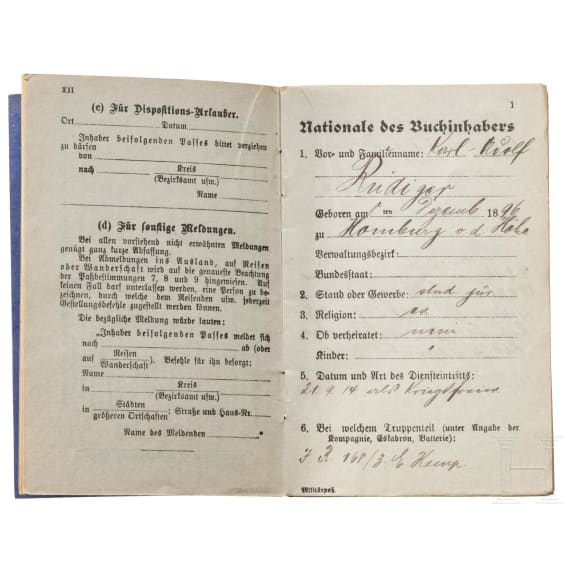 XII
(c) Für Dispositions-Urlauber.
Ort Datum
Inhaber beifolgenden Passes bittet verziehen
zu dürfen
von
nach Kreis
(Bezirksamt usw.)
Name
(d) Für sonstige Meldungen.
Bei allen vorstehend nicht erwähnten Meldungen
genügt ganz kurze Abfassung.
Bei Abmeldungen ins Ausland, auf Reisen
oder Wanderschaft wird auf die genaueste Beachtung
der Paßbestimmungen 7, 8 und 9 hingewiesen. Auf
keinen Fall darf unterlassen werden, eine Person zu be-
zeichnen, durch welche dem Reisenden usw. jederzeit
Gestellungsbefehle zugestellt werden können.
Die bezügliche Meldung würde lauten:
„Inhaber beifolgenden Passes meldet sich
nach ab (oder
auf Reisen
Wanderschaft). Befehle für ihn besorgt:
Name
in Kreis
(Bezirksamt usw.)
in Städten
größeren Ortschaften: Straße und Haus-Nr.
Name des Meldenden
1
Nationale des Buchinhabers
1. Vor- und Familienname: Karl Adolf
Rüdiger
Geboren am ten Dezemb 1896
zu Homburg v. d. Höhe
Verwaltungsbezirk:
Bundesstaat:
2. Stand oder Gewerbe: stud jur
3. Religion: ev.
4. Ob verheiratet: nein
Kinder:
5. Datum und Art des Diensteintritts:
21. 9. 14 als Kriegsfreiw.
6. Bei welchem Truppenteil (unter Angabe der
Kompagnie, Eskadron, Batterie):
J. R. 168/3. E Komp.
Militärpaß.